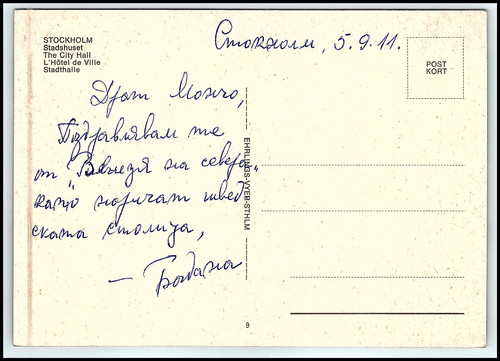 STOCKHOLM
Stadshuset
The City Hall
L'Hôtel de Ville
Stadthalle
Стокхолм, 5.9.11.
POST
KORT
Поздравявам те
от „Венеция на севера“
както наричат швед
ската столица,
— Богдана
EHRLINGS-VYEB-STHLM
9